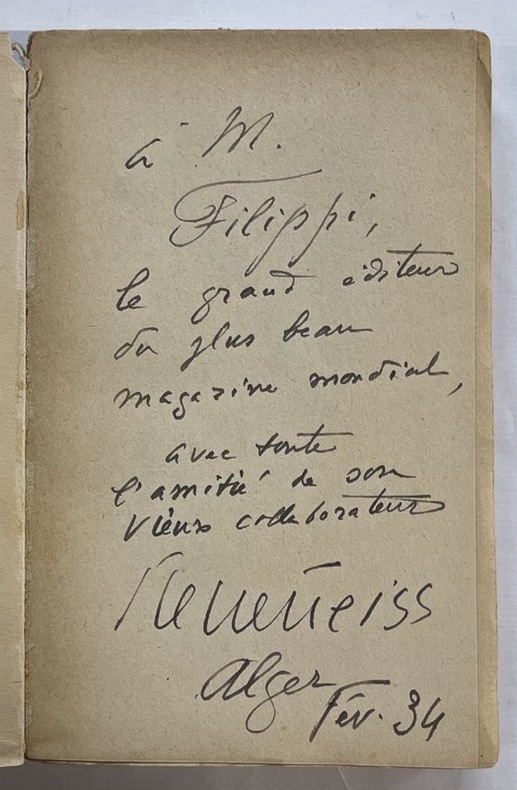 à M.
Filippi,
le grand éditeur
du plus beau
magazine mondial,
avec toute
l'amitié de son
vieux collaborateur
Alger
Fév. 34